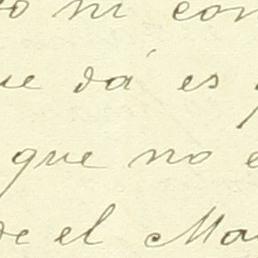 no ni con
que dá es
que no e
de el Ma